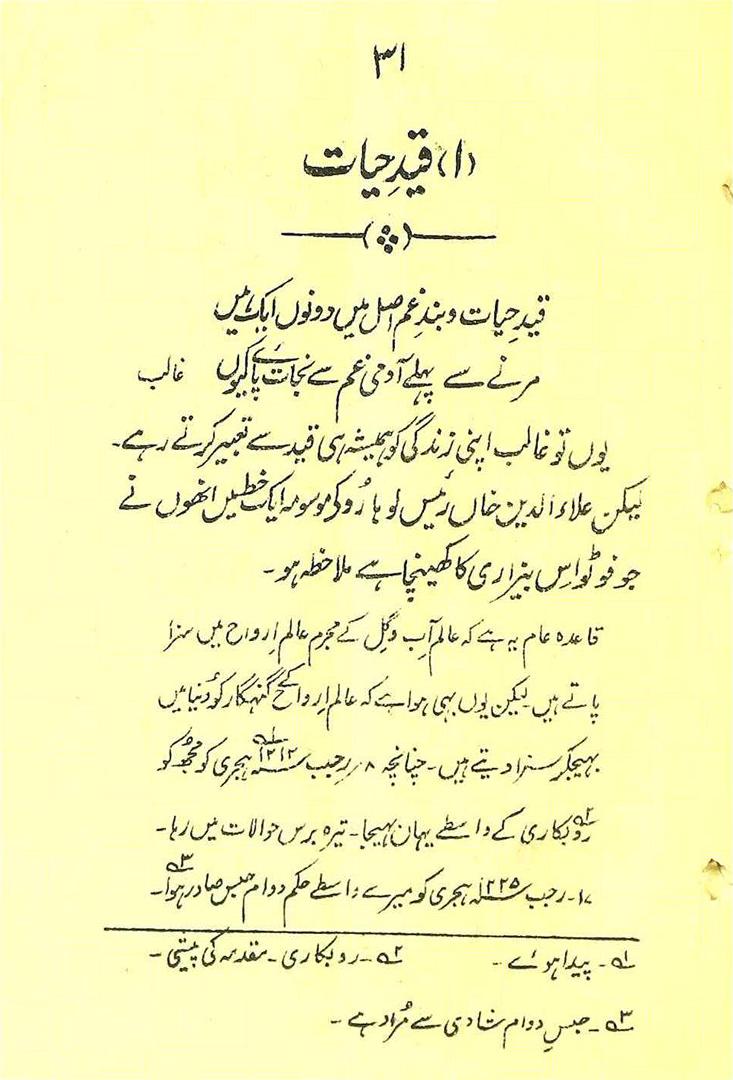 ۳۱
(۱) قیدِ حیات
قیدِ حیات و بندِ غم اصل میں دونوں ایک ہیں
مرنے سے پہلے آدمی غم سے نجات پائے کیوں غالب
یوں تو غالب اپنی زندگی کو ہمیشہ ہی قید سے تعبیر کرتے رہے۔
لیکن علاءالدین خاں رئیس لوہارُو کی موسومہ ایک خط میں انھوں نے
جو فوٹو اِس بیزاری کا کھینچا ہے ملاحظہ ہو۔
قاعدہ عام یہ ہے کہ عالمِ آب و گِل کے مجرم عالمِ ارواح میں سزا
پاتے ہیں۔ لیکن یوں بہی ہوا ہے کہ عالمِ ارواح کے گنہگار کو دُنیا میں
بہیجکر سزا دیتے ہیں۔ چنانچہ ۸؍ رجب ۱۲۱۲ھ؁۱ ہجری کو مجُھ کو
روبکاری؁۲ کے واسطے یہان بہیجا۔ تیرہ برس حوالات میں رہا۔
۱۷۔ رجب ۱۲۲۵؁ ہجری کو میرے واسطے حکم دوام حبس صادر ہوا؁۳۔
؁۱۔ پیدا ہوئے۔ ؁۲۔ روبکاری۔ مقدمہ کی پیشی۔
؁۳۔ حبسِ دوام شادی سے مُراد ہے۔